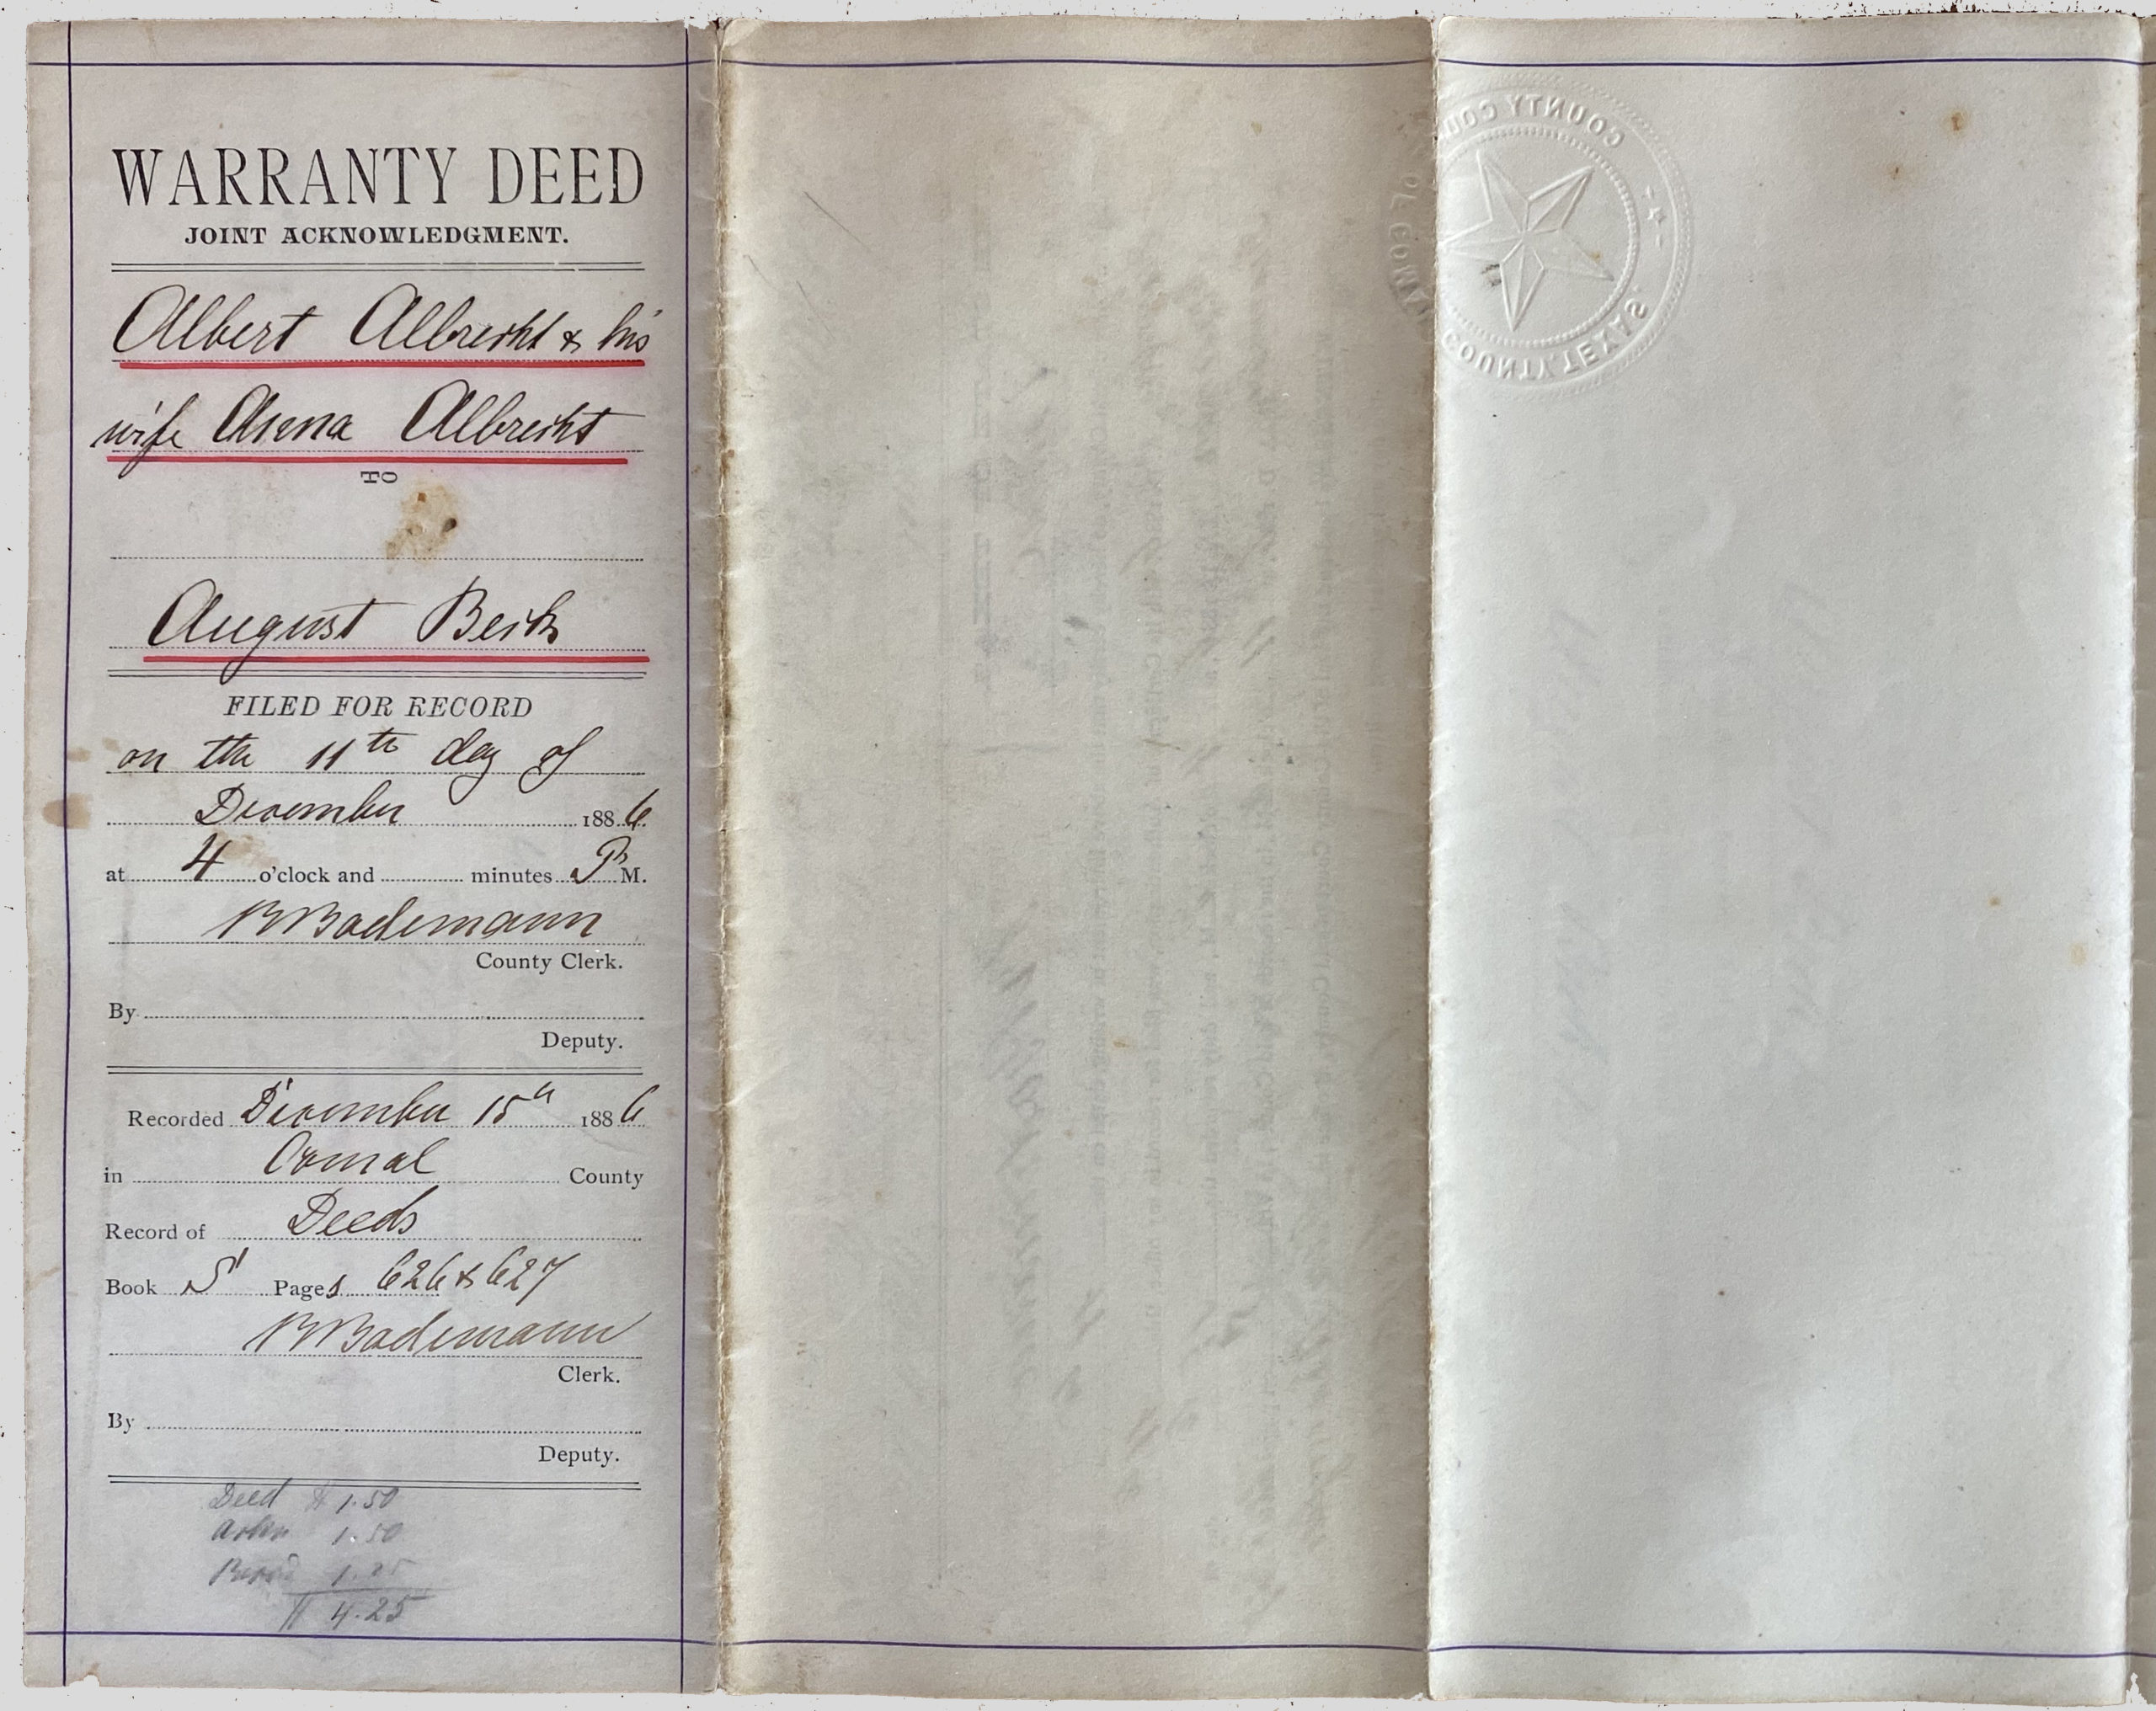 WARRANTY DEED
JOINT ACKNOWLEDGMENT.
Albert Albrecht & his
wife Anna Albrecht
TO
August Beik
FILED FOR RECORD
on the 11th day of
December 1886.
at 4 o'clock and minutes P. M.
Bodemann
County Clerk.
By
Deputy.
Recorded December 15th 1886
in Comal County
Record of Deeds
Book S Pages 626 & 627
Bodemann
Clerk.
By
Deputy.
Deed $ 1.50
1.50
Record 1.25
$ 4.25
COUNTY COU
OF COMAL
COUNTY, TEXAS.